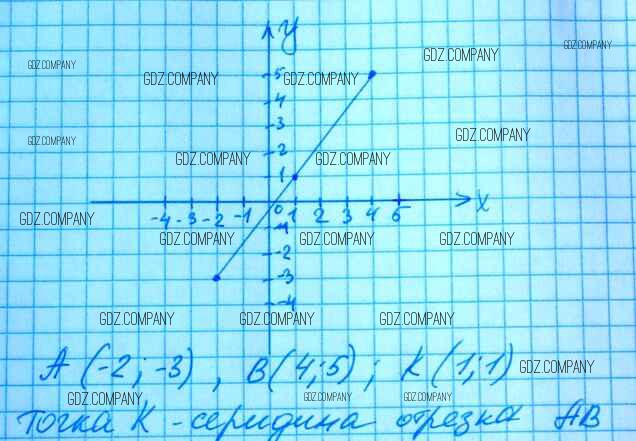 y
GDZ.COMPANY GDZ.COMPANY
GDZ.COMPANY GDZ.COMPANY GDZ.COMPANY
5
4
3
GDZ.COMPANY GDZ.COMPANY
2
GDZ.COMPANY GDZ.COMPANY
1
-4 -3 -2 -1 0 1 2 3 4 5 x
GDZ.COMPANY
-1
GDZ.COMPANY GDZ.COMPANY GDZ.COMPANY
-2
-3
-4
GDZ.COMPANY GDZ.COMPANY GDZ.COMPANY
A (-2; -3), B(4;5); K(1;1) GDZ.COMPANY
GDZ.COMPANY GDZ.COMPANY GDZ.COMPANY
Точка K - середина отрезка AB